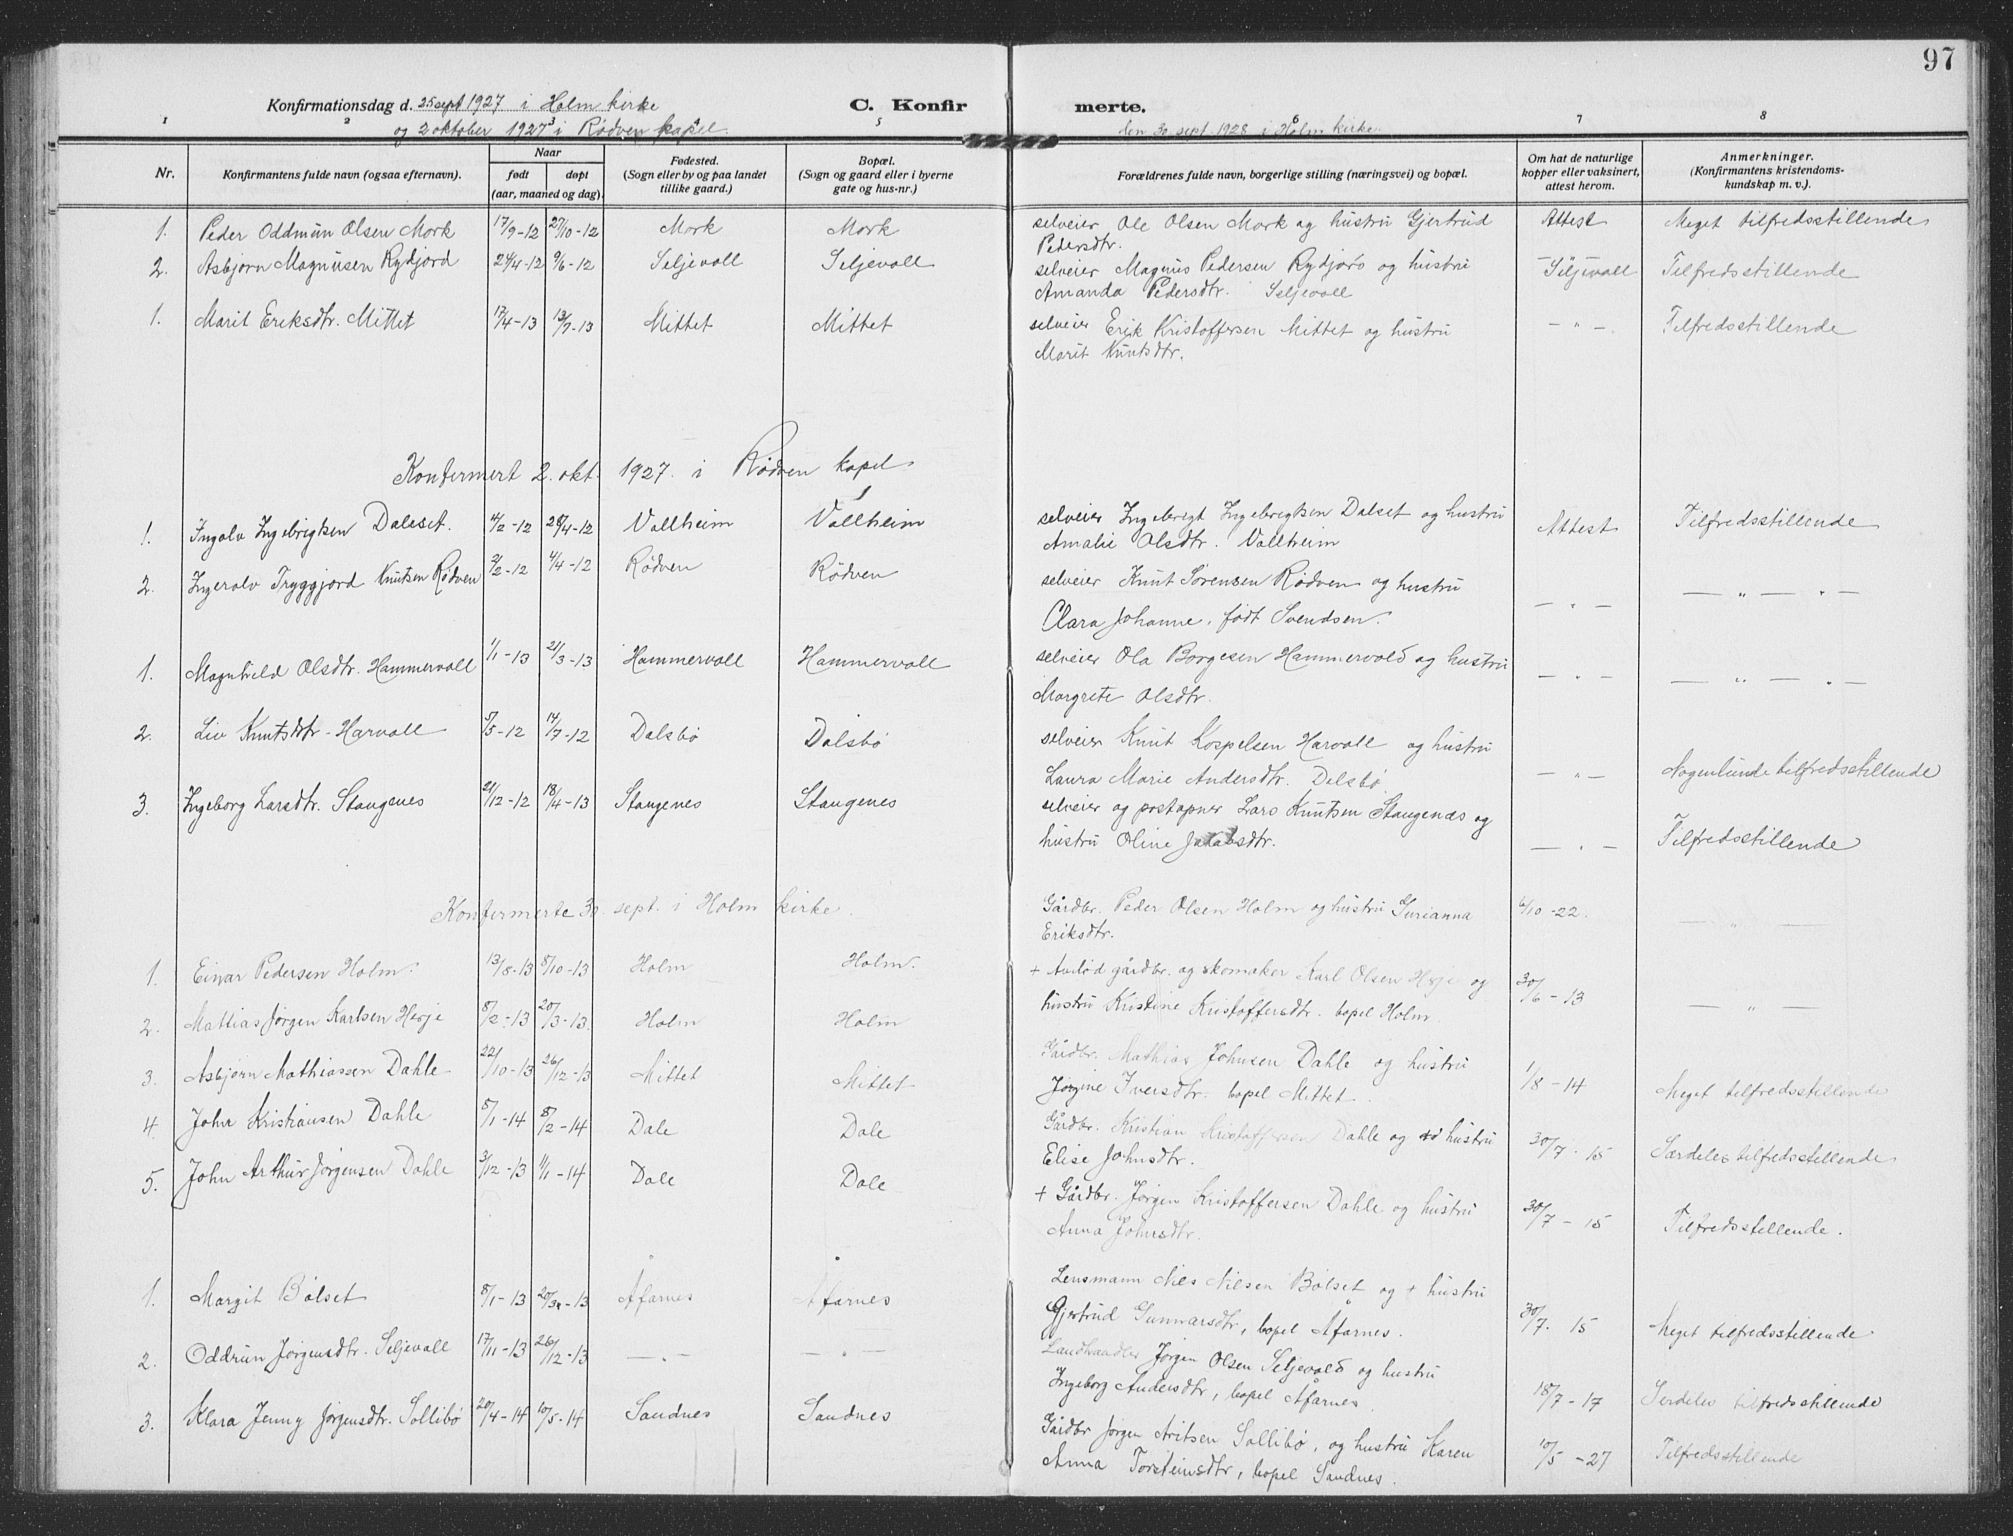 97
Konfirmationsdag d. 25 sept 1927 i Holm kirke
og 2 oktober 1927 i Rødven kapel.
C. Konfirmerte.
den 30 sept 1928 i Holm kirke
1 2 3 4 5 6 7 8
Nr.
Konfirmantens fulde navn (ogsaa efternavn).
Naar
født
døpt
(aar, maaned og dag).
Fødested.
(Sogn eller by og paa landet
tillike gaard.)
Bopæl.
(Sogn og gaard eller i byerne
gate og hus-nr.)
Forældrenes fulde navn, borgerlige stilling (næringsvei) og bopæl.
Om hat de naturlige
kopper eller vaksinert,
attest herom.
Anmerkninger.
(Konfirmantens kristendoms-
kundskap m. v.).
1. Peder Oddmun Olsen Mork 17/9-12 27/10-12 Mork Mork selveier Ole Olsen Mork og hustru Gjertrud Attest Meget tilfredsstillende
Pedersdtr.
2. Asbjørn Magnusen Rydjord 24/4-12 9/6-12 Seljevoll Seljevoll selveier Magnus Pedersen Rydjord og hustru Seljevoll Tilfredsstillende
Amanda Pedersdtr. Seljevoll
1. Marit Eriksdtr. Mittet 17/4-13 13/7-13 Mittet Mittet selveier Erik Kristoffersen Mittet og hustru - " - Tilfredsstillende
Marit Knutsdtr.
Konfermert 2. okt. 1927. i Rødven kapel
1. Ingolv Ingebrigtsen Dalset. 4/2-12 28/4-12 Vollheim Vollheim selveier Ingebrigt Ingebrigtsen Dalset og hustru Attest Tilfredsstillende
Amalie Olsdtr. Vollheim
2. Ingerolv Tryggjord Knutsen Rødven 2/2-12 4/4-12 Rødven Rødven selveier Knut Sørensen Rødven og hustru - " - - " - " -
Clara Johanne, født Svendsen.
1. Magnhild Olsdtr. Hammervoll 1/1-13 21/3-13 Hammervoll Hammervoll selveier Ola Borgesen Hammervold og hustru - " - - " - " -
Margrete Olsdtr.
2. Liv Knutsdtr. Harvoll 5/5-12 14/7-12 Dalsbø Dalsbø selveier Knut Kospelsen Harvoll og hustru
Laura Marie Andersdtr. Dalsbø - " - Nogenlunde tilfredsstillende
3. Ingeborg Larsdtr. Staugenes 21/12-12 18/4-13 Staugenes Staugenes selveier og postapner Lars Knutsen Staugenæs og
hustru Oline Jakobsdtr. - " - Tilfredsstillende
Konfermerte 30. sept. i Holm kirke.
Gårdbr. Peder Olsen Holm og hustru Gurianna 6/10-22. - " -
Eriksdtr.
1. Einar Pedersen Holm. 13/8-13 5/10-13 Holm Holm.
+ Avdød gårdbr. og skomaker Karl Olsen Herje og 30/6-13
2. Mattias Jørgen Karlsen Herje 8/2-13 20/3-13. Holm Holm hustru Kristine Kristoffersdtr. bopel Holm. - " -
3. Asbjørn Mathiassen Dahle 22/10-13 26/12-13 Mittet Mittet Gårdbr. Mathias Johnsen Dahle og hustru
Jørgine Iversdtr. bopel Mittet. 1/8-14 Meget tilfredsstillende
4. John Kristiansen Dahle 5/1-14 8/2-14 Dale Dale Gårdbr. Kristian Kristoffersen Dahle og hustru 30/7-15 Særdeles tilfredsstillende
Elise Johnsdtr.
5. John Arthur Jørgensen Dahle 3/12-13 1/1-14 Dale Dale + Gårdbr. Jørgen Kristoffersen Dahle og hustru 30/7-15 Tilfredsstillende.
Anna Johnsdtr.
1. Margit Bølset 8/1-13 -13 Åfarnes Åfarnes Lensmann Nils Nilsen Bølset og + hustru
Gjertrud Gunnarsdtr, bopel Åfarnes. 30/7. 15 Meget tilfredsstillende
2. Oddrun Jørgensdtr. Seljevoll 17/11-13 26/12-13 - " - - " - Landhandler Jørgen Olsen Seljevold og hustru
Ingeborg Andersdtr, bopel Åfarnes. 18/7-17 Serdeles tilfredsstillende
3. Klara Jenny Jørgensdtr. Sollibø 20/4-14 10/5-14 Sandnes Sandnes Gårdbr Jørgen Aritsen Sollibø, og hustru Karen 10/5-27 Tilfredsstillende
Anna Torsteinsdtr, bopel Sandnes.